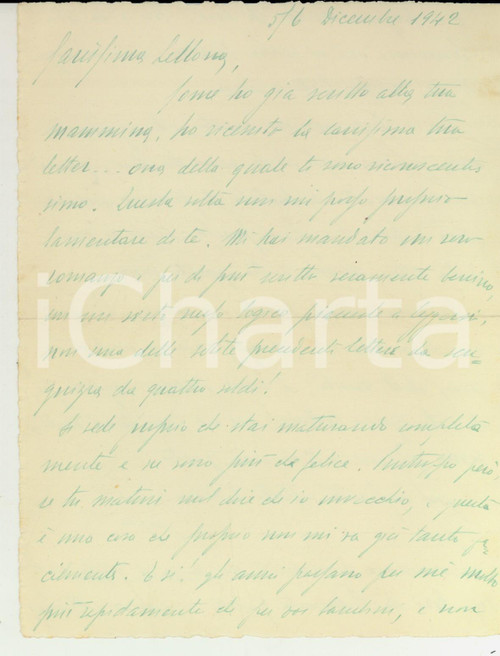 5/6 Dicembre 1942
Carissima Lellona,
Come ho già scritto alla tua
mammina, ho ricevuto la carissima tua
letter...ona della quale ti sono riconoscentis
simo. Questa volta non mi posso proprio
lamentare di te. Mi hai mandato un vero
romanzo e per di più scritto veramente benino,
in un modo
non una delle solite precedenti lettere da
da quattro soldi!
Si vede proprio che stai maturando completa
mente e ne sono più che felice. Purtroppo però,
se tu maturi vuol dire che io invecchio, e questa
è una cosa che proprio non mi va giù tanto fa-
cilmente. E sì! gli anni passano per me molto
più rapidamente che per voi bambini, e non
iCharta